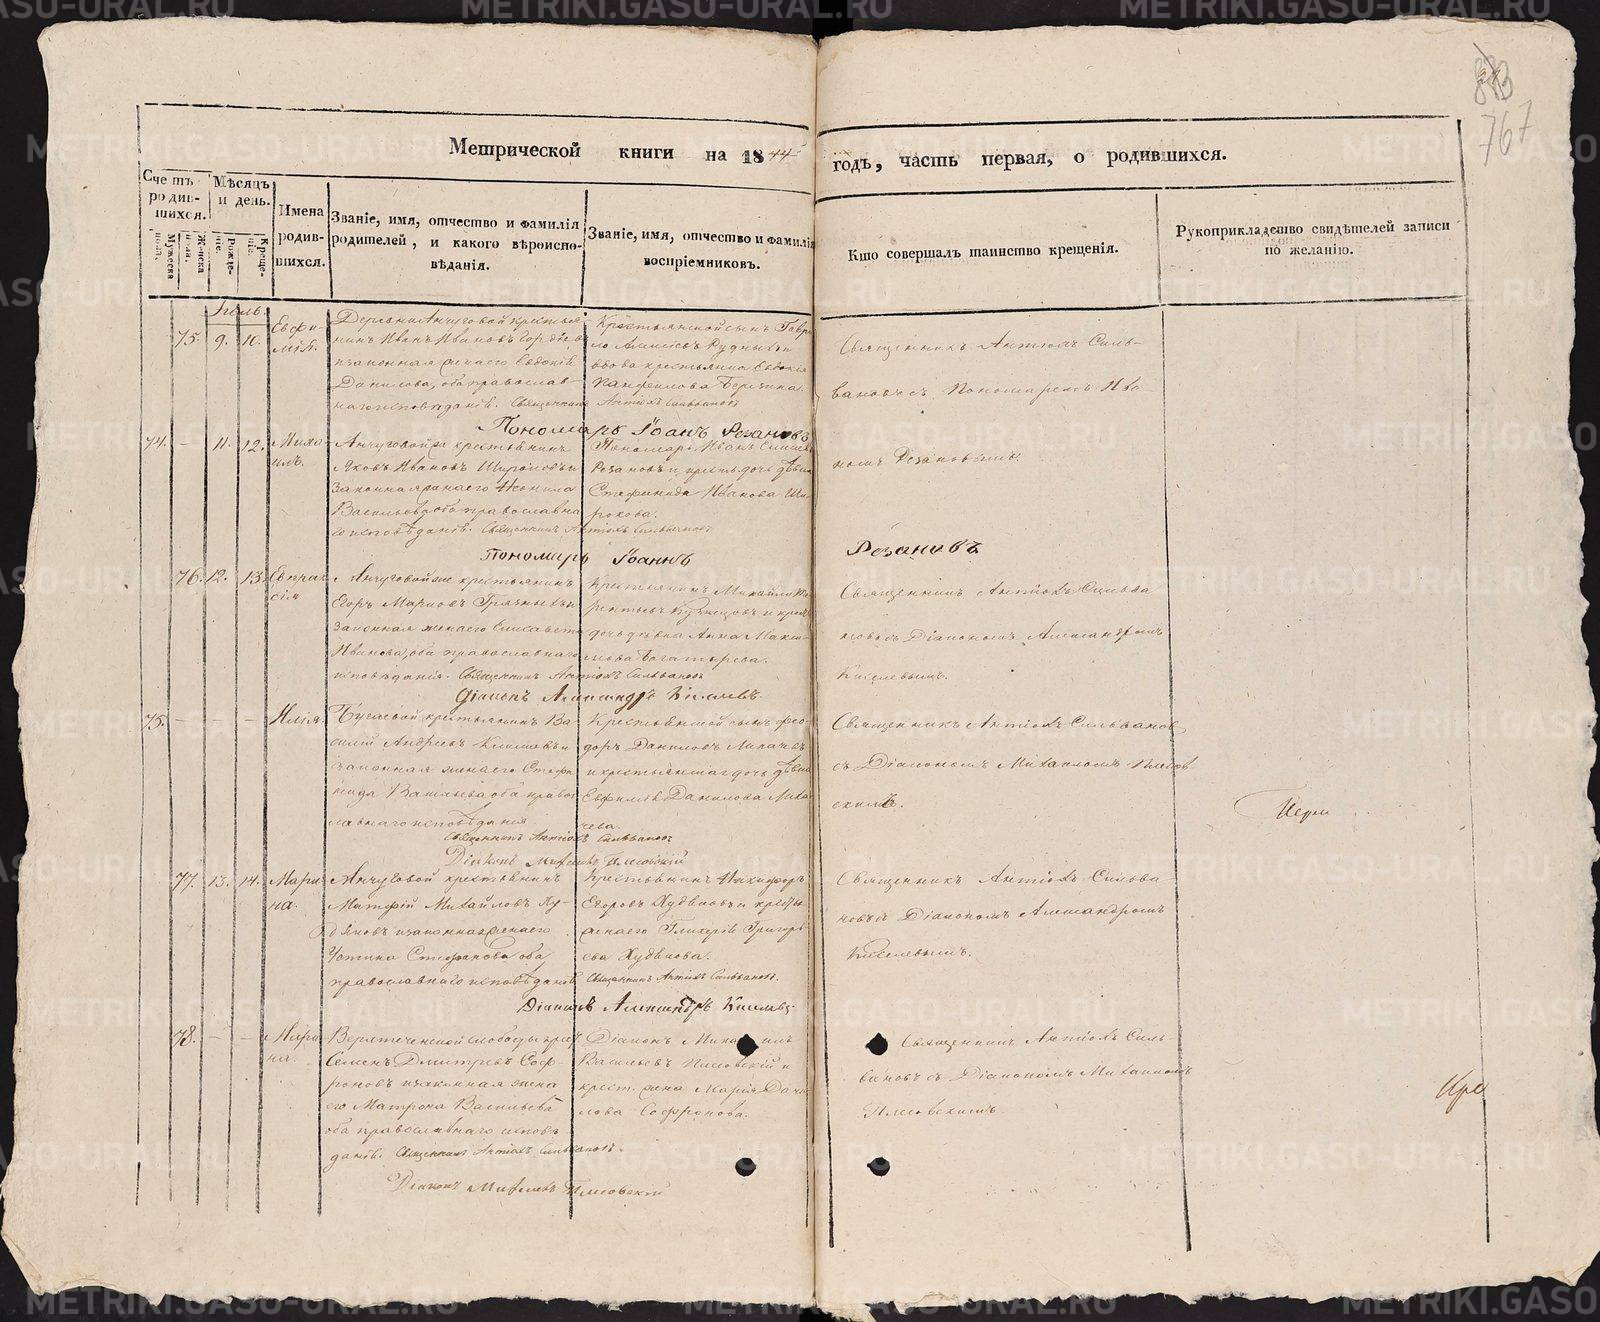 883
767
Метрической книги на 1844 годъ, часть первая, о родившихся.
Счетъ родившихся.
Мужеска пола.
Женска пола.
Мѣсяцъ и день.
Рожденіе.
Крещеніе.
Имена родившихся.
Званіе, имя, отчество и фамилія родителей, и какого вѣроисповѣданія.
Званіе, имя, отчество и фамилія воспріемниковъ.
Кто совершалъ таинство крещенія.
Рукоприкладство свидѣтелей записи по желанію.
Іюль.
75. 9. 10. Евфимія.
Деревни Анчуговой крестья-
нинъ Иванъ Ивановъ
и законная жена его Евдокія
Данилова, оба православ-
наго исповѣданія. Священникъ Антіохъ Сильвановъ
Крестьянской сынъ Гаври-
ло Алексѣевъ Рудныхъ и
вдова крестьянка Евдокія
Панфилова Березина.
Священникъ Антіохъ Силь-
вановъ съ Пономаремъ Ива-
номъ Резановымъ.
Пономарь Іоаннъ Резановъ
74. – 11. 12. Михаилъ.
Анчуговой же крестьянинъ
Яковъ Ивановъ и
законная жена его Неонила
Васильева, оба православна-
го исповѣданія. Священникъ Антіохъ Сильвановъ
Пономарь Иванъ
Резановъ и крест. дочь дѣвица
Стефанида Иванова Ши-
рокова.
Пономарь Іоаннъ Резановъ
76. 12. 13. Евпраксія
Анчуговой же крестьянинъ
Егоръ Марковъ Грязныхъ и
законная жена его Елисавета
Иванова, оба православнаго
исповѣданія. Священникъ Антіохъ Сильвановъ
Крестьянинъ Михайло
Кузнецовъ и крест.
дочь дѣвка Анна Макси-
мова Богатырева.
Священникъ Антіохъ Сильва-
новъ съ Діакономъ Александромъ
Киселевымъ.
Діаконъ Александръ Киселевъ.
75. – – – Илія.
Бугаевой крестьянинъ Ва-
силій Андреевъ Климовъ и
законная жена его Стефа-
нида Васильева, оба право-
славнаго исповѣданія
Священникъ Антіохъ Сильвановъ
Крестьянской сынъ Фео-
доръ Даниловъ Михачевъ
и крестьянская дочь дѣвица
Евфимія Данилова Миха-
чева.
Священникъ Антіохъ Сильвановъ
съ Діакономъ Михаиломъ Плесов-
скимъ.
Діаконъ Михаилъ Плесовскій
77. 13. 14. Марина.
Анчуговой крестьянинъ
Матфій Михайловъ Ху-
дяковъ и законная жена его
Устина Стефанова, оба
православнаго исповѣданія. Священникъ Антіохъ Сильвановъ.
Крестьянинъ Никифоръ
Егоровъ Худяковъ и крест.
жена его Гликерія Григорь-
ева Худякова.
Священникъ Антіохъ Сильва-
новъ съ Діакономъ Александромъ
Киселевымъ.
Діаконъ Александръ Киселевъ.
78. – – Марина.
Верхтеченской слободы крест.
Семенъ Дмитревъ Соф-
роновъ и законная жена
его Матрона Васильева
оба православнаго исповѣ-
данія. Священникъ Антіохъ Сильвановъ.
Діаконъ Михаилъ
Васильевъ Плесовскій и
крест. жена Марія Дани-
лова Софронова.
Священникъ Антіохъ Силь-
вановъ съ Діакономъ Михаиломъ
Плесовскимъ
Діаконъ Михаилъ Плесовскій
METRIKI.GASO-URAL.RU